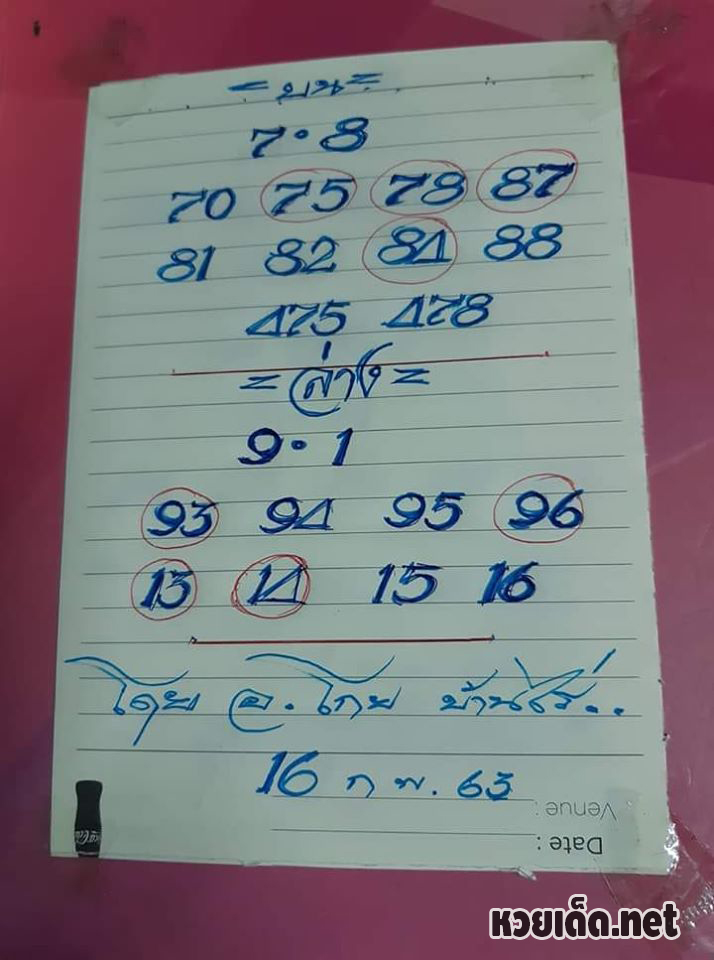 = บน =
7 • 8
70 75 78 87
81 82 84 88
475 478
= ล่าง =
9 • 1
93 94 95 96
13 14 15 16
โดย อ. โกย บ้านไร่..
16 ก พ. 63
Venue :
Date :
หวยเด็ด.net